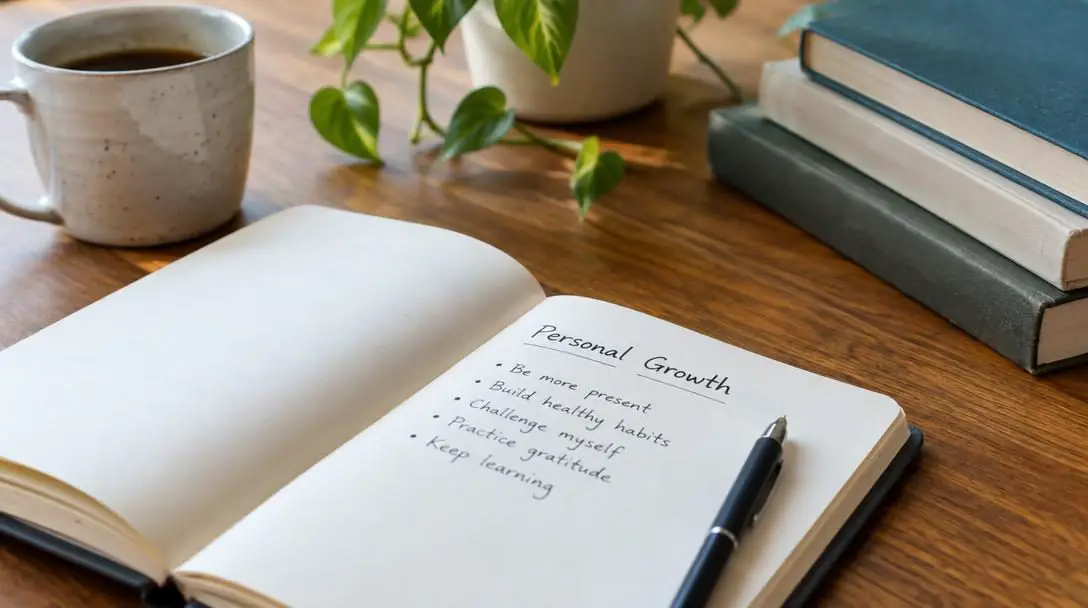 Personal Growth
• Be more present
• Build healthy habits
• Challenge myself
• Practice gratitude
• Keep learning